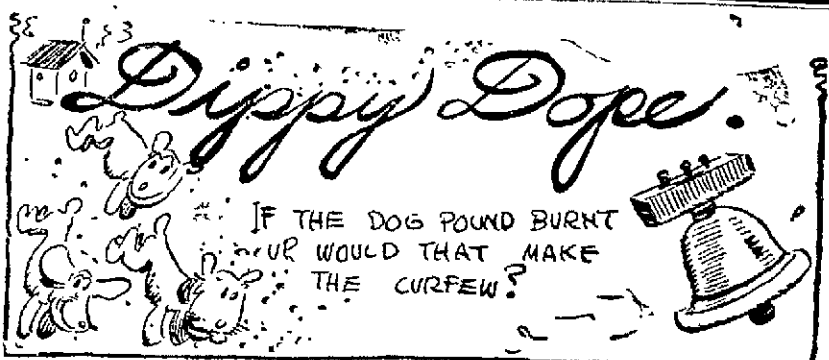 Dippy Dope.
IF THE DOG POUND BURNT
UP WOULD THAT MAKE
THE CURFEW?